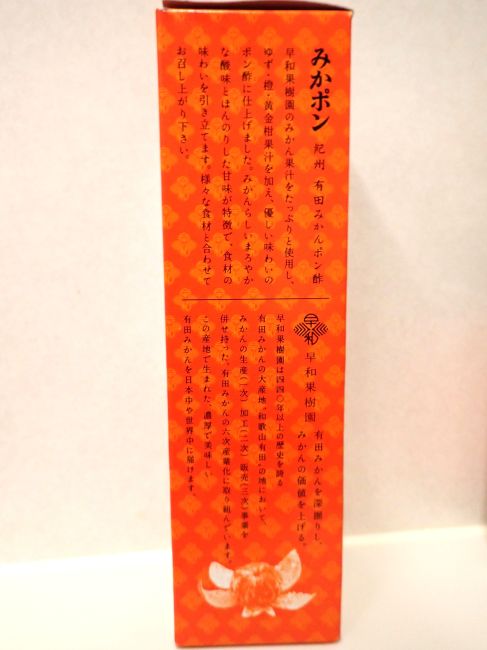 みかポン 紀州 有田みかんポン酢
早和果樹園のみかん果汁をたっぷりと使用し、
ゆず・橙・黄金柑果汁を加え、優しい味わいの
ポン酢に仕上げました。みかんらしいまろやか
な酸味とほんのりした甘味が特徴で、食材の
味わいを引き立てます。様々な食材と合わせて
お召し上がり下さい。
早和
早和果樹園
有田みかんを深掘りし、
みかんの価値を上げる。
早和果樹園は四四〇年以上の歴史を誇る
有田みかんの大産地“和歌山有田”の地において、
みかんの生産(一次)加工(二次)販売(三次)事業を
併せ持った、有田みかんの六次産業化に取り組んでいます。
この産地で生まれた、濃厚で美味しい
有田みかんを日本中や世界中に届けます。